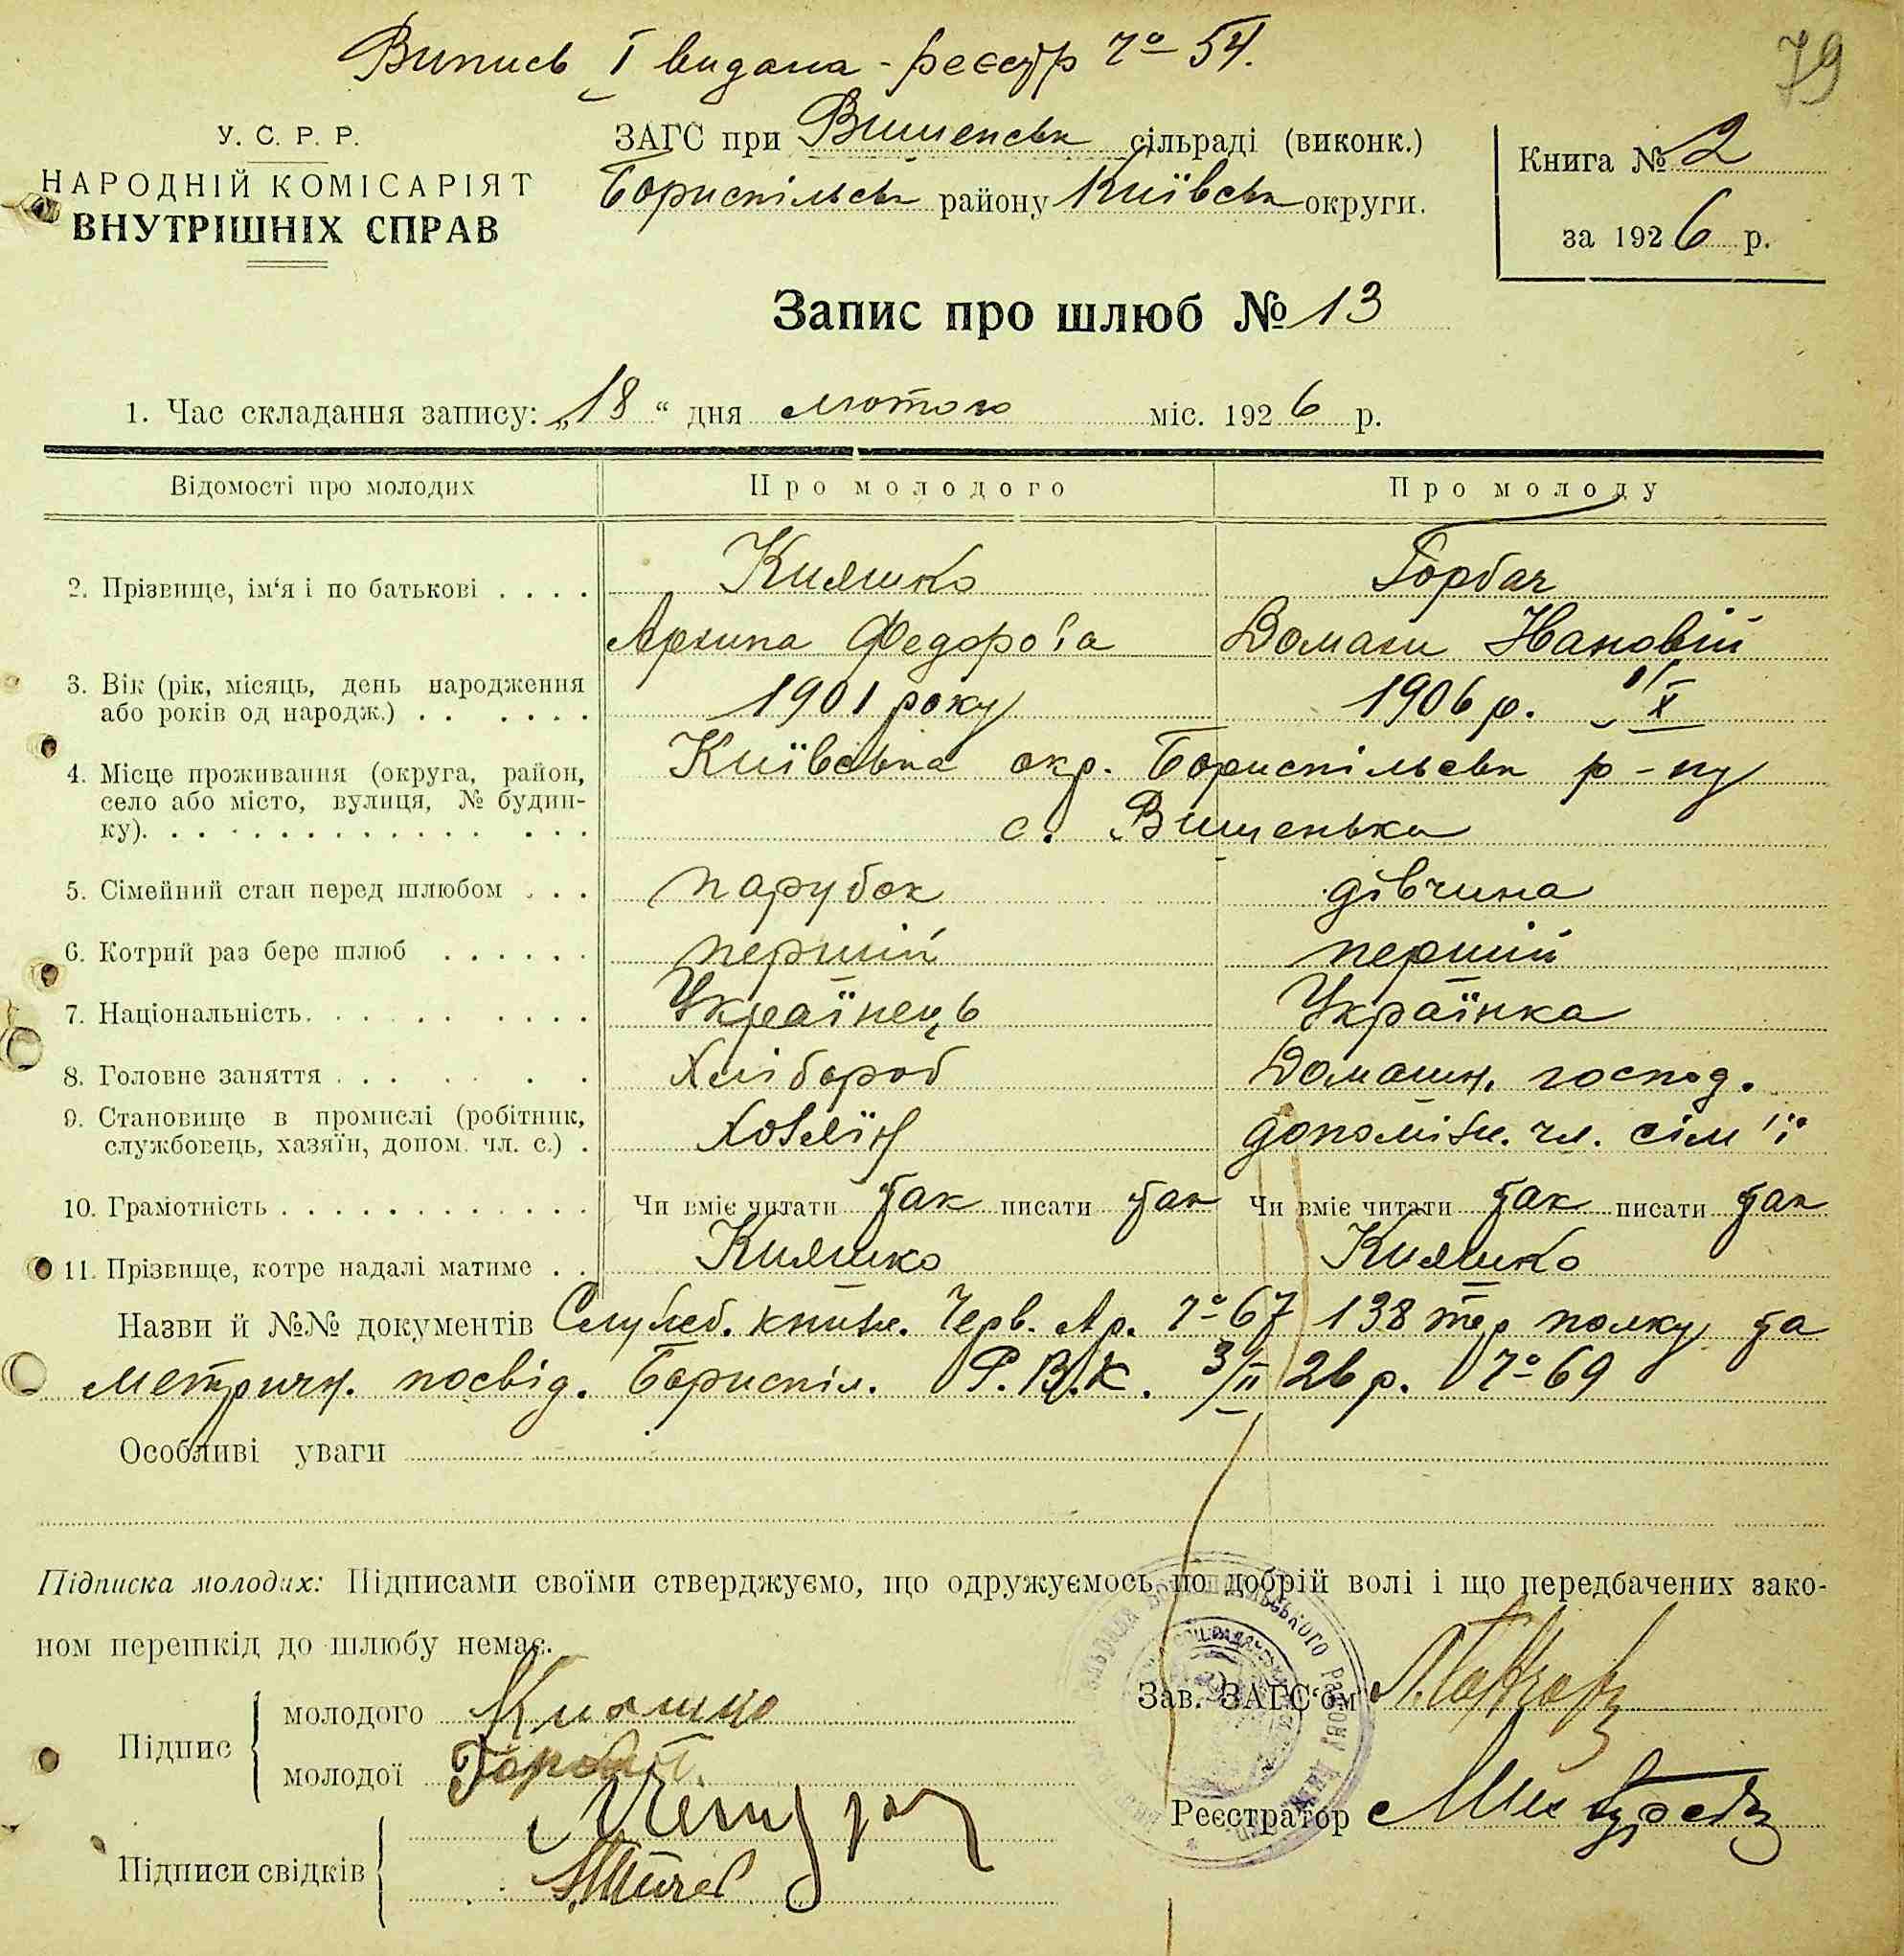 Випись І видана - реєстр № 54.
79
У. С. Р. Р.
НАРОДНІЙ КОМІСАРІЯТ
ВНУТРІШНІХ СПРАВ
ЗАГС при Вишенськ сільраді (виконк.)
Бориспільськ району Київськ округи.
Книга № 2
за 1926 р.
Запис про шлюб № 13
1. Час складання запису: „18“ дня лютого міс. 1926 р.
Відомості про молодих
Про молодого
Про молоду
2. Прізвище, ім‘я і по батькові . . . .
Кияшко
Горбач
Архипа Федоро'а
Домахи Івановій
3. Вік (рік, місяць, день народження
або років од народж.) . . . . . .
1901 року
1906 р.
4. Місце проживання (округа, район,
село або місто, вулиця, № будин-
ку). . . . . . . . . . . . . . .
Київська окр. Бориспільськ р-ну
с. Вишенька
5. Сімейний стан перед шлюбом . . .
парубок
дівчина
6. Котрий раз бере шлюб . . . . . .
перший
перший
7. Національність. . . . . . . . . .
Українець
Українка
8. Головне заняття . . . . . . .
Хлібороб
Домашн. господ.
9. Становище в промислі (робітник,
службовець, хазяїн, допом. чл. с.) .
Хозяїн
допоміжн. чл. сім'ї
10. Грамотність . . . . . . . . . . . . .
Чи вміє читати так писати так
Чи вміє читати так писати так
11. Прізвище, котре надалі матиме . .
Кияшко
Кияшко
Назви й №№ документів Служб. книж. Черв. Ар. № 67 138 тер полку та
метричн. посвід. Бориспіл. Р.В.К. 3/II 26 р. № 69
Особливі уваги
Підписка молодих: Підписами своїми стверджуємо, що одружуємось по добрій волі і що передбачених зако-
ном перешкід до шлюбу немає.
Підпис
молодого Кияшко
молодої Горбач.
Підписи свідків
Зав. ЗАГС‘ом
Реєстратор